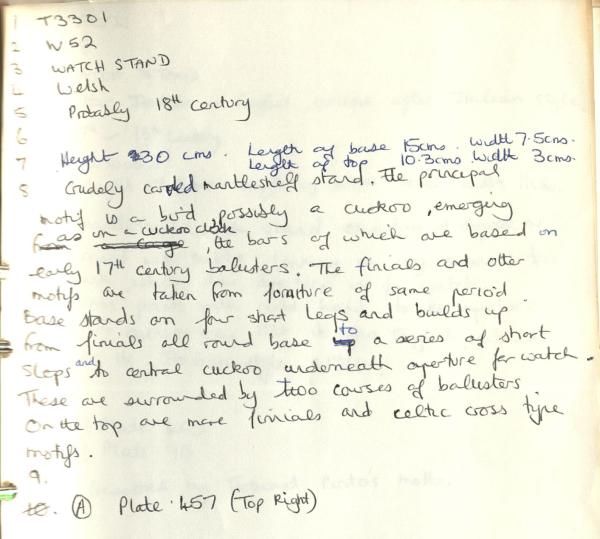 1 T3301
2 W52
3 WATCH STAND
4 Welsh
5 Probably 18th century
6
7 Height 30 cms. Length of base 15cms. Width 7.5cms.
Length of top 10.3cms Width 3cms.
8 Crudely carved mantleshelf stand. The principal
motif is a bird, possibly a cuckoo, emerging
as in a cuckoo clock
from a cage, the bars of which are based on
early 17th century balusters. The finials and other
motifs are taken from furniture of same period.
Base stands on four short legs and builds up
from finials all round base to a series of short
steps and to central cuckoo underneath aperture for watch.
These are surrounded by two courses of ballusters
On the top are more finials and celtic cross type
motifs.
9.
10. (A) Plate 457 (Top Right)